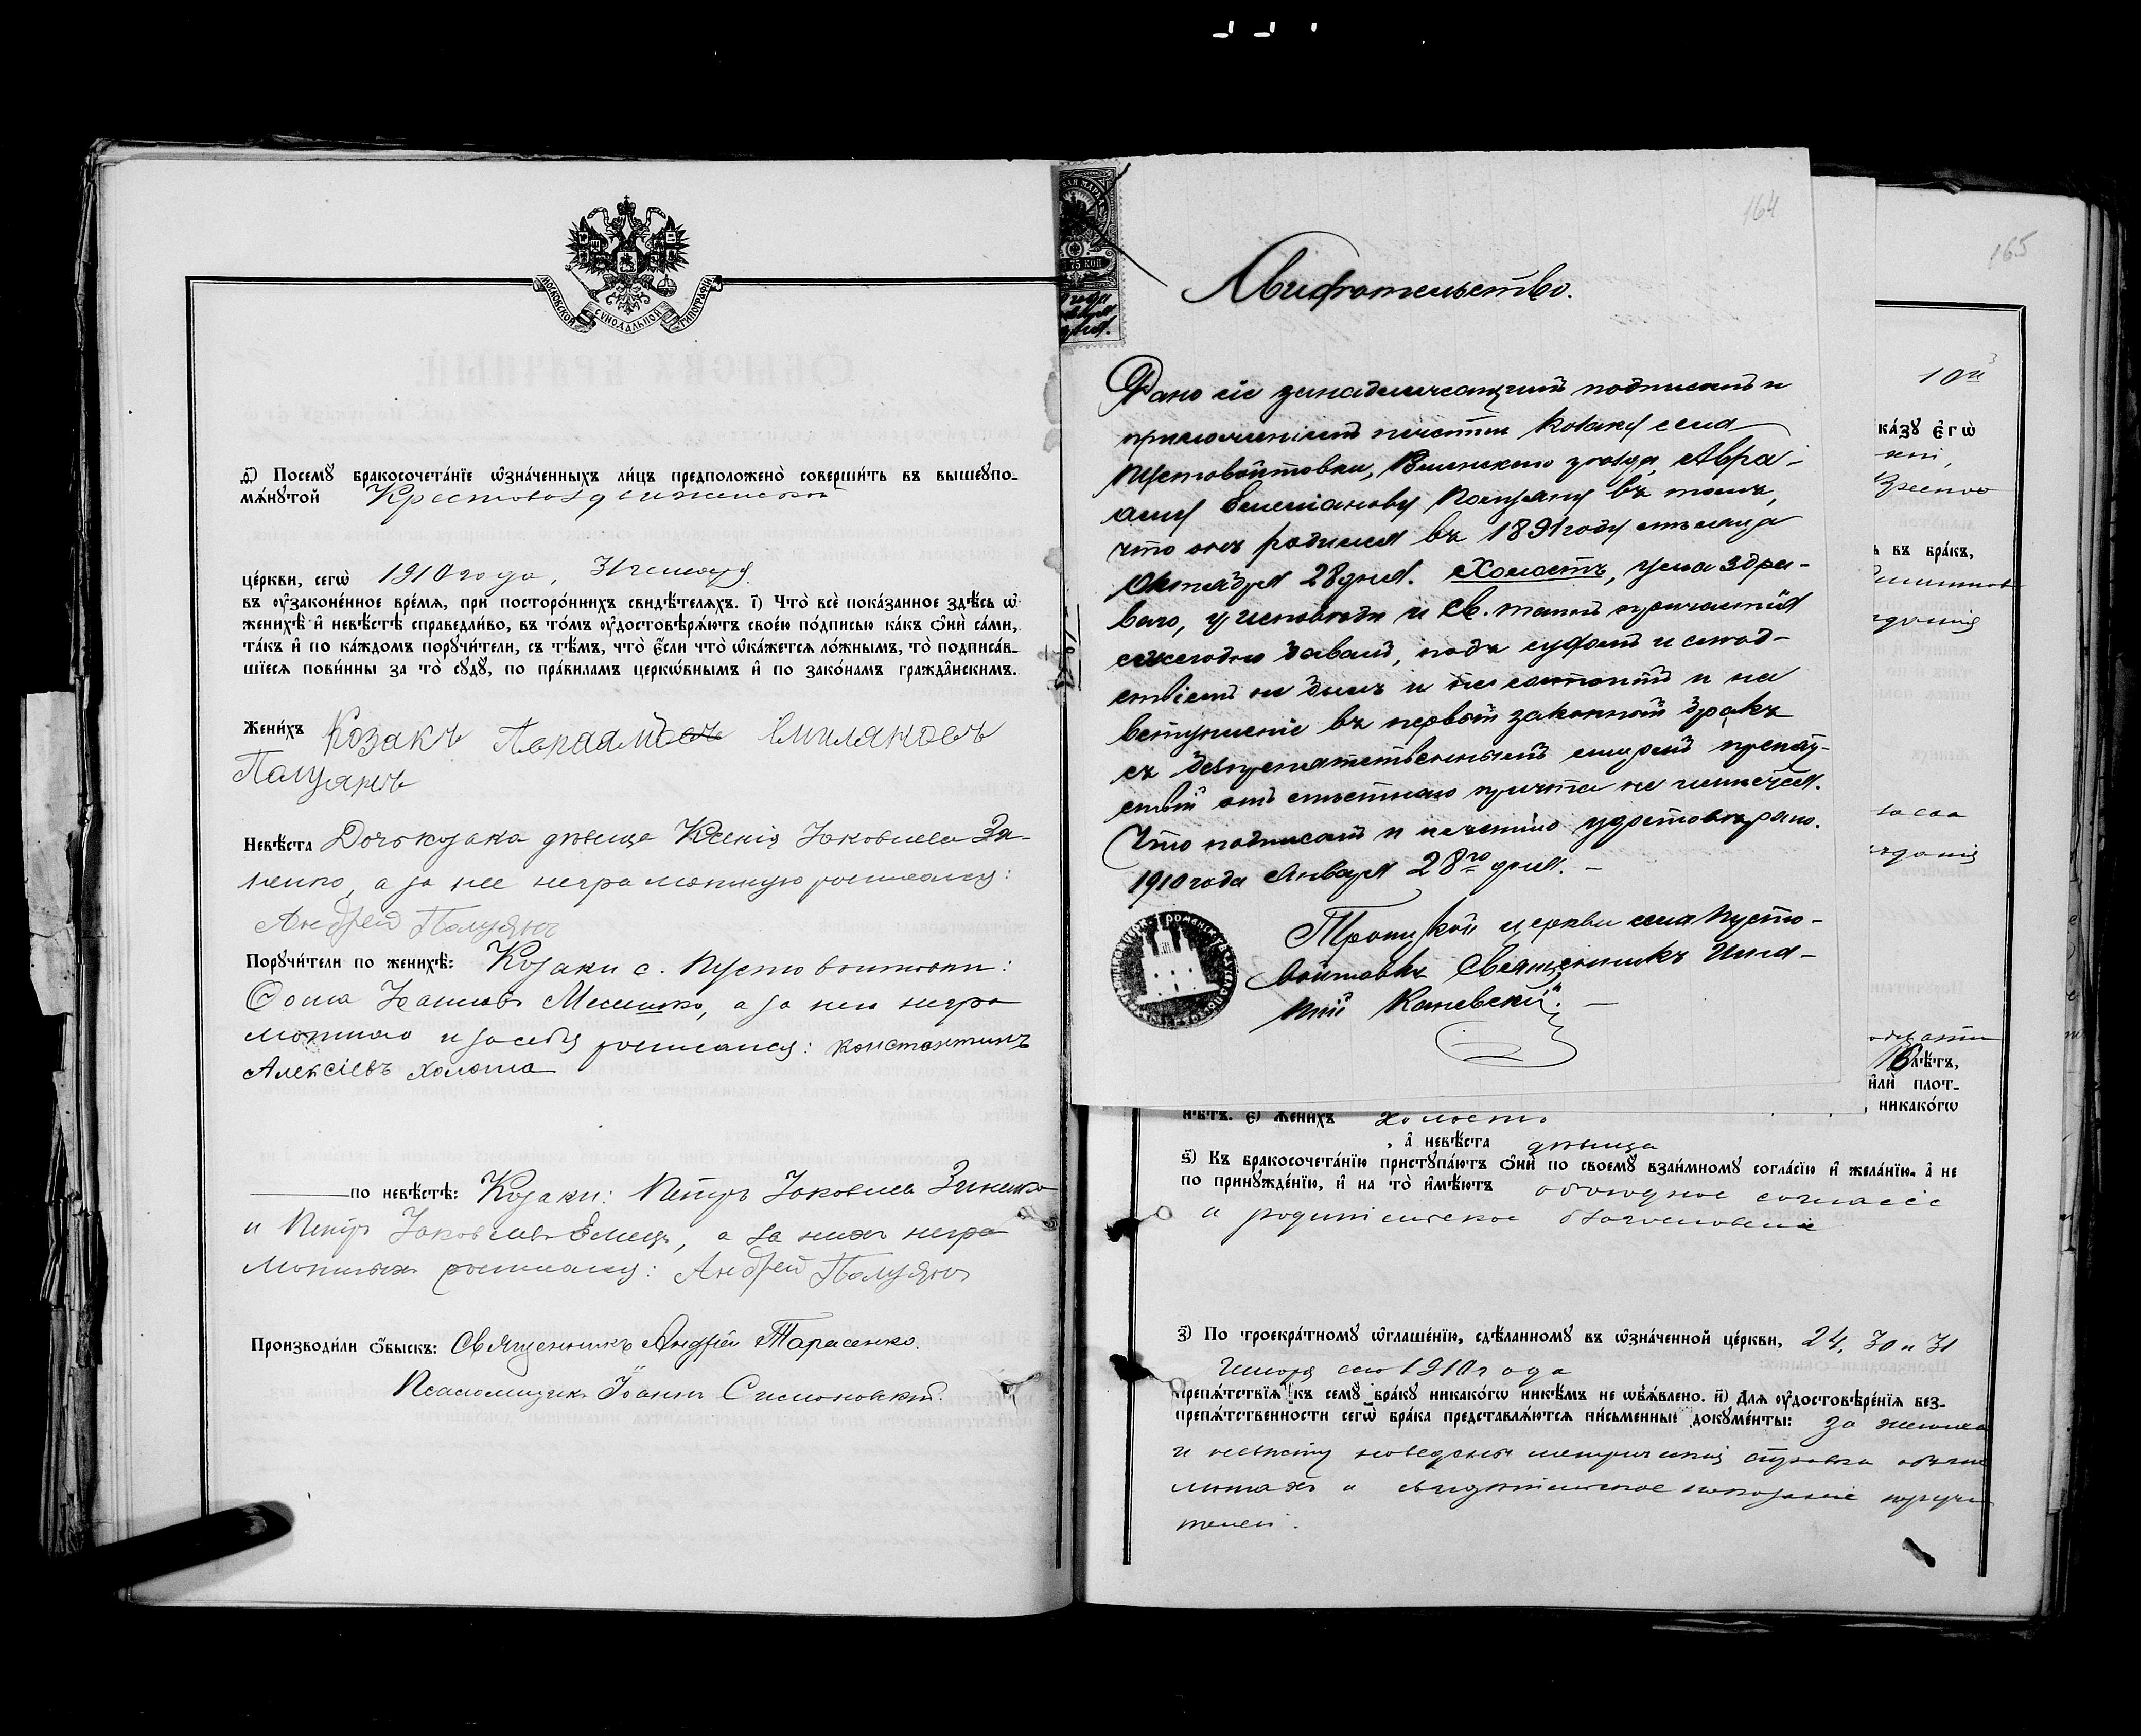 МОСКОВСКОЙ СѴНОДАЛЬНОЙ ТИПОГРАФІИ
д҃) Посему бракосочета́нїе ѡзна́ченныхъ ли́цъ предположено̀ соверши́ть въ вышеупо-
мѧ́нутой Крестовоздвиженской
це́ркви, сегѡ̀ 1910 года,
въ ᲂу҆законе́нное вре́мѧ, при посторо́ннихъ свидѣ́телѧхъ. і҃) Что̀ всѐ пока́занное здѣ́сь ѡ҆
женихѣ̀ и҆ невѣ́стѣ справедли́во, въ то́мъ ᲂу҆достовѣрѧ́ютъ свое́ю по́дписью ка́къ ѻ҆нѝ са́ми,
та́къ и҆ по ка́ждомъ поручи́тели, съ тѣ́мъ, что̀ є҆́сли что̀ ѡ҆ка́жетсѧ ло́жнымъ, то̀ подписа́в-
шїесѧ пови́нны за то̀ суду̀, по пра́виламъ церко́внымъ и҆ по зако́намъ гражда́нскимъ.
Жени́хъ Козакъ Авраамъ Емиляновъ
Полуянъ
Невѣ́ста Дочь козака дѣвица Ксенія Іаковлева Зи-
ненко, а за нее неграмотную росписался:
Андрей Полуянъ
Поручи́тели по женихѣ̀: Козаки с. Пустовойтовки:
Ѳома Іоанновъ, а за него негра
мотнаго и за себя росписался: Константинъ
Алексіевъ Холота
по невѣ́стѣ: Козаки: Петръ Іаковлевъ Зиненко
и Петръ Іаковлевъ Емецъ, а за нихъ негра
мотныхъ росписался: Андрей Полуянъ
Производи́ли ѻ҆́быскъ: Священникъ Андрей Тарасенко.
Псаломщикъ Іоаннъ Симоновскій.
164
75 КОП
Свидѣтельство.
Дано сіе за надлежащимъ подписомъ и
приложеніемъ печати козаку села
Пустовойтовки, Роменскаго уѣзда, Авра-
аму Емеліанову Полуяну въ томъ,
что онъ родился въ 1891 году мѣсяца
Октября 28 дня. Холостъ, ума здра-
ваго, у исповѣди и Св. таинъ причастія
ежегодно бывалъ, подъ судомъ и слѣд-
ствіемъ не былъ и не состоитъ и на
вступленіе въ первый законный бракъ
съ безпрепятственнымъ лицемъ препят-
ствій отъ мѣстнаго причта не имѣется.
Что подписомъ и печатію удостовѣрено.
1910 года Января 28го дня. —
Троицкой церкви села Пусто-
войтовки Священникъ
Каневскій. —
165
10
ка́зу є҆гѡ̀
ь въ бра́къ,
лѣ́тъ,
и҆лѝ плот-
, никако́гѡ
нѣ́тъ. є҃) Жени́хъ холостъ
, а҆ невѣ́ста дѣвица
ѕ҃) Къ бракосочета́нїю приступа́ютъ ѻ҆нѝ по своему̀ взаи́мному согла́сїю и҆ жела́нїю, а҆ не
по принужде́нїю, и҆ на то̀ и҆мѣ́ютъ обоюдное согласіе
и родительское благословеніе
з҃) По троекра́тному ѡ҆глаше́нїю, сдѣ́ланному въ ѡ҆зна́ченной це́ркви, 24, 30 и 31
сего 1910 года
препѧ́тствїѧ къ сему̀ бра́ку никако́гѡ никѣ́мъ не ѡ҆бъѧ́влено. и҃) Длѧ ᲂу҆достовѣре́нїѧ без-
препѧ́тственности сегѡ̀ бра́ка представлѧ́ютсѧ пи́сьменные докуме́нты: за жениха
и невѣсту
и показаніе поручи
телей.